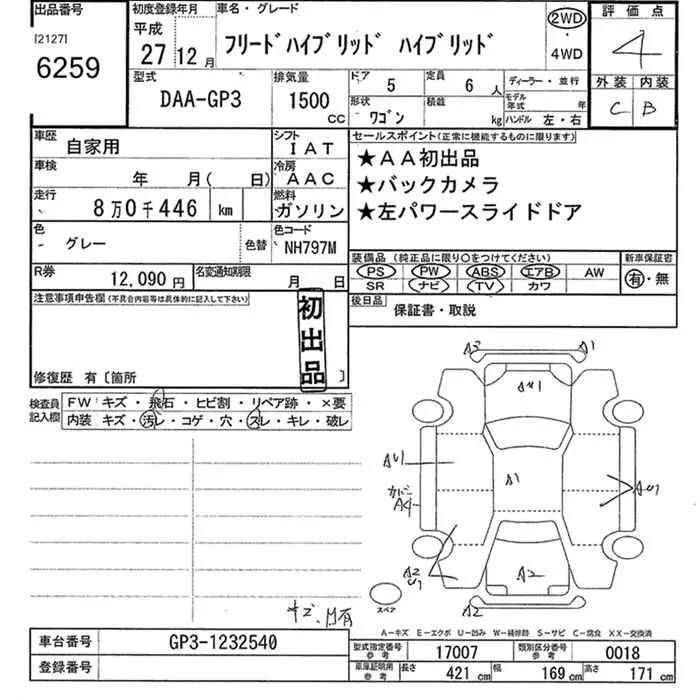 出品番号
[2127]
6259
初度登録年月
平成
27 12 月
車名・グレード
フリードハイブリッド ハイブリッド
2WD
・
4WD
評価点
4
外装 内装
C B
型式
DAA-GP3
排気量
1500
CC
ドア 5
定員 6 人
形状 ワゴン
積載 kg
ディーラー・並行
モデル年式 年
ハンドル 左・右
車歴 自家用
シフト IAT
車検 年 月( 日)
冷房 AAC
走行 8万0千446 km
燃料 ガソリン
色 グレー
色替
色コード NH797M
R券 12,090 円
名変通知期限 月 日
セールスポイント(正常に機能するものに限ります)
★AA初出品
★バックカメラ
★左パワースライドドア
装備品(純正品に限り○をつけてください)
PS PW ABS エアB AW
SR ナビ TV カワ
新車保証書
有・無
後日品 保証書・取説
注意事項申告欄(不具合内容等は具体的に記入して下さい)
初出品
修復歴 有〔箇所 〕
検査員記入欄
FW キズ・飛石・ヒビ割・リペア跡・×要
内装 キズ・汚レ・コゲ・穴・スレ・キレ・破レ
A3 A1
AU1
AU1
A1
AU1
カバー
A4
A2
U1
A2
A2
スペア
キズ、凹有
A−キズ E−エクボ U−凹み W−補修跡 S−サビ C−腐食 XX−交換済
車台番号 GP3-1232540
登録番号
型式指定番号 参考 17007
類別区分番号 参考 0018
車庫証明用 参考 長さ 421 cm 幅 169 cm 高さ 171 cm